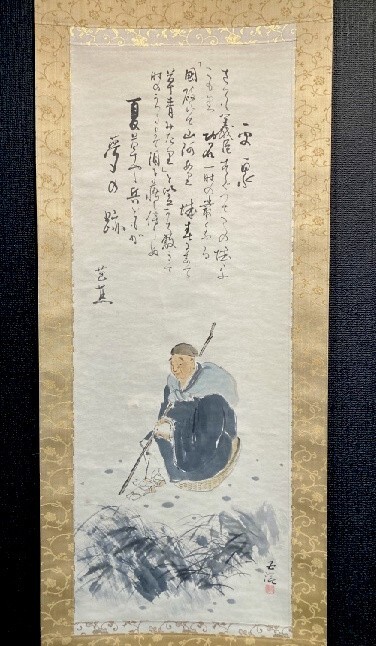 平泉
さても義臣すぐつてこの城に
こもり功名一時の叢となる
国破れて山河あり城春にして
草青みたりと笠うち敷て
時のうつるまで泪を落し侍りぬ
夏草や兵どもが
夢の跡
芭蕉